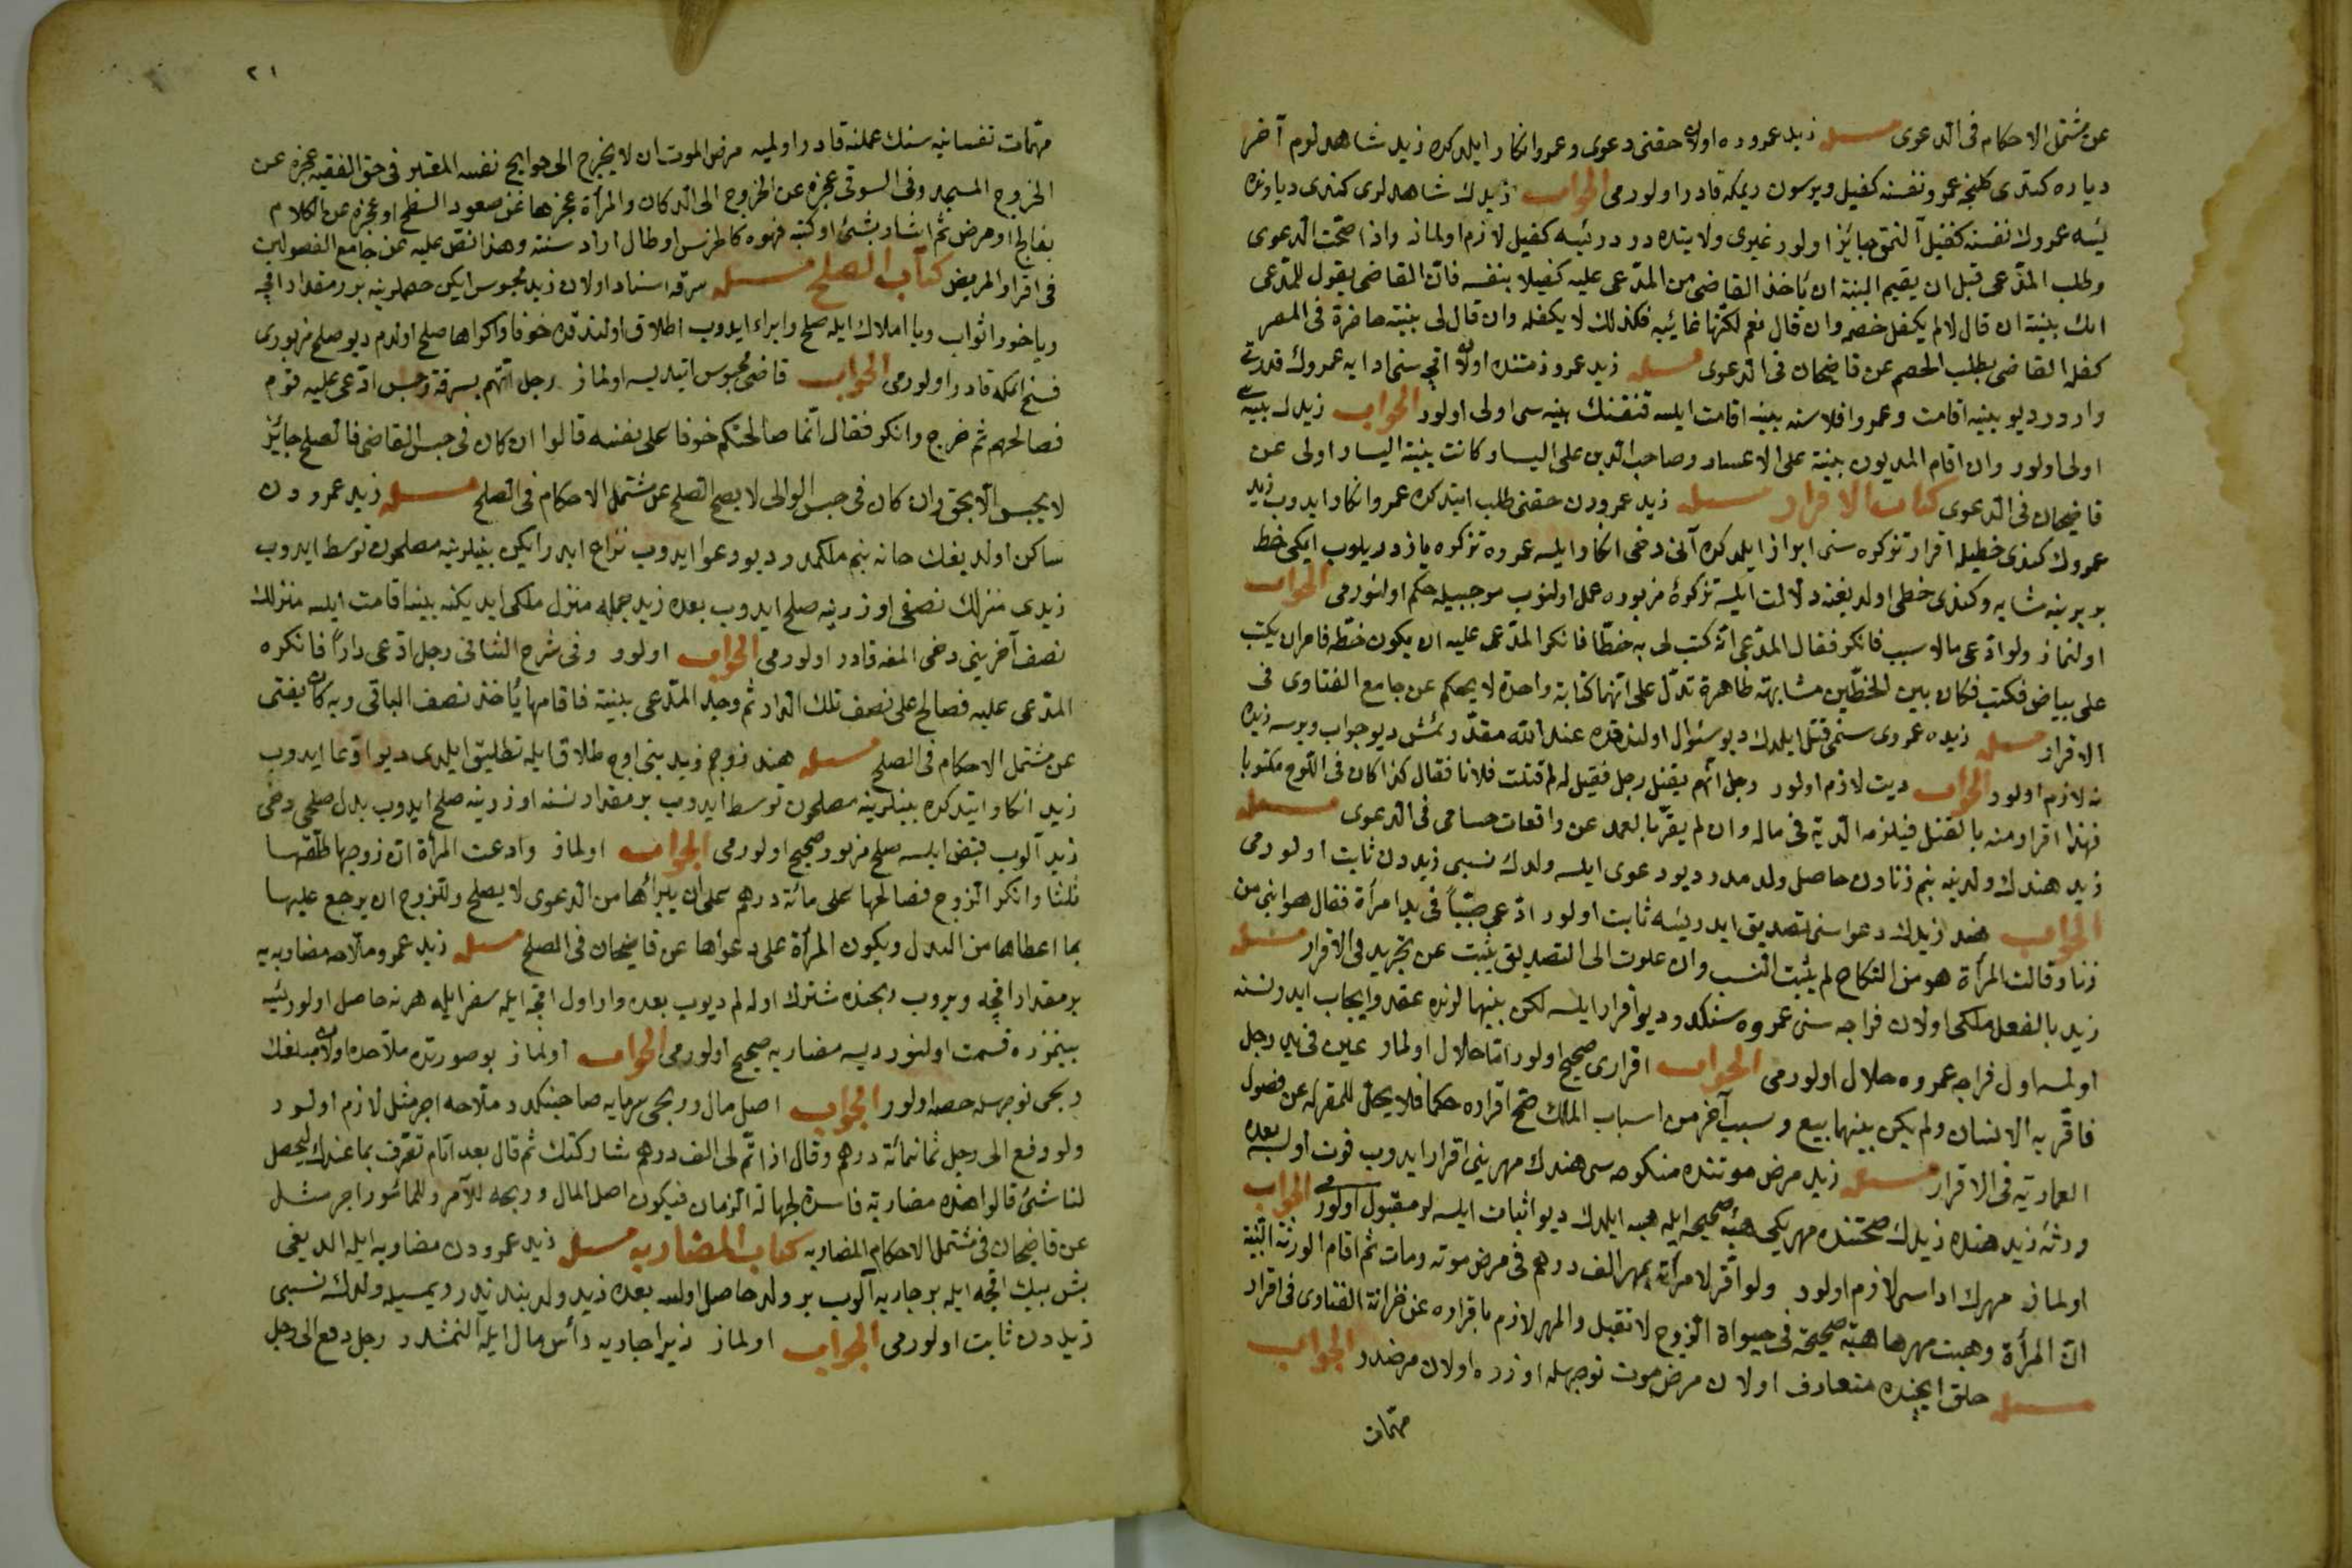 عن مشتمل الاحكام فى الدعوى مسئله زيد عمروده اولان حقنى دعوى وعمرو انكار ايلدكده زيد شاهدلرم آخر
دياره كتدى كلنجه عمرو نفسنه كفيل ويرسون ديمكه قادر اولورمى الجواب زيدك شاهدلرى كندى ديارنده
ئيسه عمروك نفسنه كفيل آلنمق جايز اولور غيرى ولايتده در درئيسه كفيل لازم اولماز واذا صحت الدعوى
وطلب المدعى قبل ان يقيم البينة ان ياخذ القاضى من المدعى عليه كفيلا بنفسه فان القاضى يقول للمدعى
الك بينة ان قال لا لم يكفل خصمه وان قال نعم لكنها غائبة فكذلك لا يكفله وان قال لى بينة حاضرة فى المصر
كفله القاضى بطلب الخصم عن قاضيخان فى الدعوى مسئله زيد عمرو ذمتنده اولان اقچه سنى ادايه عمروك قدرتى
واردر ديو بينه اقامت وعمرو افلاسنه بينه اقامت ايلسه قنغسنك بينه سى اولى اولور الجواب زيدك بينه سى
اولى اولور وان اقام المديون بينة على الاعسار وصاحب الدين على اليسار كانت بينة اليسار اولى عن
قاضيخان فى الدعوى كتاب الاقرار مسئله زيد عمرودن حقنى طلب ايتدكده عمرو انكار ايدوب زيد
عمروك كندى خطيله اقرار تذكره سنى ابراز ايلدكده آنى دخى انكار ايلسه عمروه تذكره يازدريلوب ايكى خط
بربرينه مشابه وكندى خطى اولديغنه دلالت ايلسه تذكرۀ مزبوره عمل اولنوب موجبيله حكم اولنورمى الجواب
اولنماز ولو ادعى مالا بسبب فانكر فقال المدعى انه كتب لى به خطا فانكر المدعى عليه ان يكون خطه فامر ان يكتب
على بياض فكتب فكان بين الخطين مشابهة ظاهرة تدل على انهما كتابة واحدة لا يحكم عن جامع الفتاوى فى
الاقرار مسئله زيده عمروى سنمى قتل ايلدك ديو سئوال اولندقده عند الله مقدر ئمش ديو جواب ويرسه زيده
نه لازم اولور الجواب ديت لازم اولور رجل اتهم بقتل رجل فقيل له لم قتلت فلانا فقال كذا كان فى اللوح مكتوبا
فهذا اقرار منه بالقتل فيلزمه الدية فى ماله وان لم يقر بالعمد عن واقعات حسامى فى الدعوى مسئله
زيد هندك ولدينه بنم زنادن حاصل ولدمدر ديو دعوى ايلسه ولدك نسبى زيددن ثابت اولورمى
الجواب هند زيدك دعواسنى تصديق ايدرئيسه ثابت اولور ادعى صبيا فى يد امرأة فقال هو ابنى من
زنا وقالت المرأة هو من النكاح لم يثبت النسب وان عادت الى التصديق يثبت عن تجريد فى الاقرار مسئله
زيد بالفعل ملكى اولان فراجه سنى عمروه سنكدر ديو اقرار ايلسه لكن بينهما لرنده عقد وايجاب ايدر نسنه
اولمسه اول فراجه عمروه حلال اولورمى الجواب اقرارى صحيح اولور اما حلال اولماز عين فى يد رجل
فاقر به الانسان ولم يكن بينهما بيع وسبب آخر من اسباب الملك صح اقراره حكما فلا يحل للمقر له عن فصول
العمادية فى الاقرار مسئله زيد مرض موتنده منكوحه سى هندك مهرينى اقرار ايدوب فوت اولسه بعده
ورثۀ زيد هنده زيدك صحتنده مهريكى هبۀ صحيحه ايله هبه ايلدك ديو اثبات ايلسه لر مقبول اولورمى الجواب
اولماز مهرك اداسى لازم اولور ولو اقر لامرأته بمهر الف درهم فى مرض موته ومات ثم اقام الورثة البينة
ان المرأة وهبت مهرها هبة صحيحة فى حيوة الزوج لا تقبل والمهر لازم باقراره عن خزانة الفتاوى فى اقرار
مسئله خلق ايچنده متعارف اولان مرض موت نوجهله اوزره اولان مرضدر الجواب
مهمات
٢١
مهمات نفسانيه سنك عملنه قادر اولميه مرض الموت ان لا يخرج الى حوايج نفسه المقبر فى حق الفقيه عجزه عن
الخروج المسجد وفى السوقى عجزه عن الخروج الى الدكان والمرأة عجزها عن صعود السطح او عجزه عن الكلام
بفالج او مرض ثم اشار بشئ او كتبه فهوه كاخرس او طال اراد سنة وهذا نص عليه عن جامع الفصولين
فى اقرار المريض كتاب الصلح مسئله سرقه اسناد اولان زيد محبوس ايكن خصملرينه بر مقدار اقچه
ويا خود اثواب ويا املاك ايله صلح وابراء ايدوب اطلاق اولندقده خوفا واكراها صلح اولدم ديو صلح مزبورى
فسخ ايلمكه قادر اولورمى الجواب قاضى محبوس ايتديسه اولماز رجل اتهم بسرقة وحبس ادعى عليه قوم
فصالحهم ثم خرج وانكر فقال انما صالحتكم خوفا على نفسه قالوا ان كان فى حبس القاضى فالصلح جائز
لا يحبس الا بحق وان كان فى حبس الوالى لا يصح الصلح عن مشتمل الاحكام فى الصلح مسئله زيد عمرودن
ساكن اولديغك خانه بنم ملكمدر ديو دعوا ايدوب نزاع ايدرايكن بينلرينه مصلحون توسط ايدوب
زيدى منزلك نصفى اوزرينه صلح ايدوب بعده زيد جمله منزل ملكى ايديكنه بينه اقامت ايلسه منزلك
نصف آخرينى دخى المغه قادر اولورمى الجواب اولور وفى شرح الشافى رجل ادعى دارا فانكره
المدعى عليه فصالح على نصف تلك الدار ثم وجد المدعى بينة فاقامها ياخذ نصف الباقى وبه كان يفتى
عن مشتمل الاحكام فى الصلح مسئله هند زوجم زيد بنى اوچ طلاق ايله تطليق ايلدى ديو ادعا ايدوب
زيد انكار ايتدكده بينلرينه مصلحون توسط ايدوب بر مقدار نسنه اوزرينه صلح ايدوب بدل صلحى دخى
زيد آلوب قبض ايلسه صلح مزبور صحيح اولورمى الجواب اولماز وادعت المرأة ان زوجها طلقها
ثلثا وانكر الزوج فصالحها على مائة درهم على ان يبرأها من الدعوى لا يصلح وللزوج ان يرجع عليها
بما اعطاها من البدل ويكون المرأة على دعواها عن قاضيخان فى الصلح مسئله زيد عمرو ملاحه مضاربه
بر مقدار اقچه ويروب ربحنده مشترك اوله لم ديوب بعده وار اول اقچه ايله سفر ايله هرنه حاصل اولورئيسه
بينمزده قسمت اولنور ديسه مضاربه صحيح اولورمى الجواب اولماز بو صورتده ملاحده اولان مبلغك
ربحى نوجهله حصه اولور الجواب اصل مال وربحى سرمايه صاحبنكدر ملاحه اجر مثل لازم اولور
ولو دفع الى رجل ثمانمائة درهم وقال اذا تم لى الف درهم شاركتك ثم قال بعد ايام تصرف بما عندك ليحصل
لنا شئ قالوا هذه مضاربة فاسدة لجهالة الزمان فيكون اصل المال وربحه للآمر وللمأمور اجر مثل
عن قاضيخان فى مشتمل الاحكام المضاربه كتاب المضاربه مسئله زيد عمرودن مضاربه ايله الديغى
بش بيك اقچه ايله بر جاريه آلوب بر ولد حاصل اولسه بعده زيد ولد بندندر ديمسيله ولدك نسبى
زيددن ثابت اولورمى الجواب اولماز زيرا جاريه رأس مال ايله آلنمشدر رجل دفع الى رجل